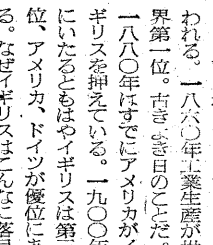 われる。一八六〇年工業生産が世
界第一位。古きよき日のことだ。
一八八〇年はすでにアメリカがイ
ギリスを押えている。一九〇〇年
にいたるともはやイギリスは第三
位、アメリカ、ドイツが優位にあ
る。なぜイギリスはこんなに落目